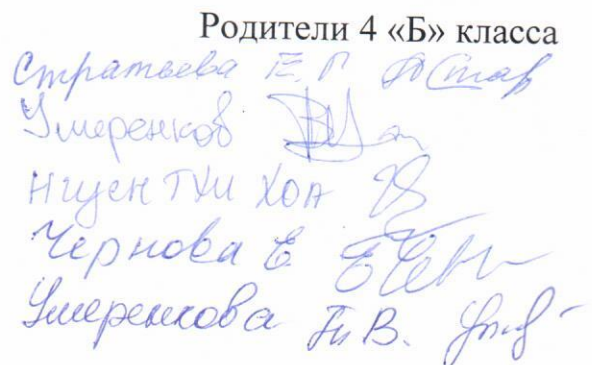 Родители 4 «Б» класса
Стратьева Е. Г.
Умеренков
Нгуен Тхи Хоа
Чернова Е.
Умеренкова Т. В.